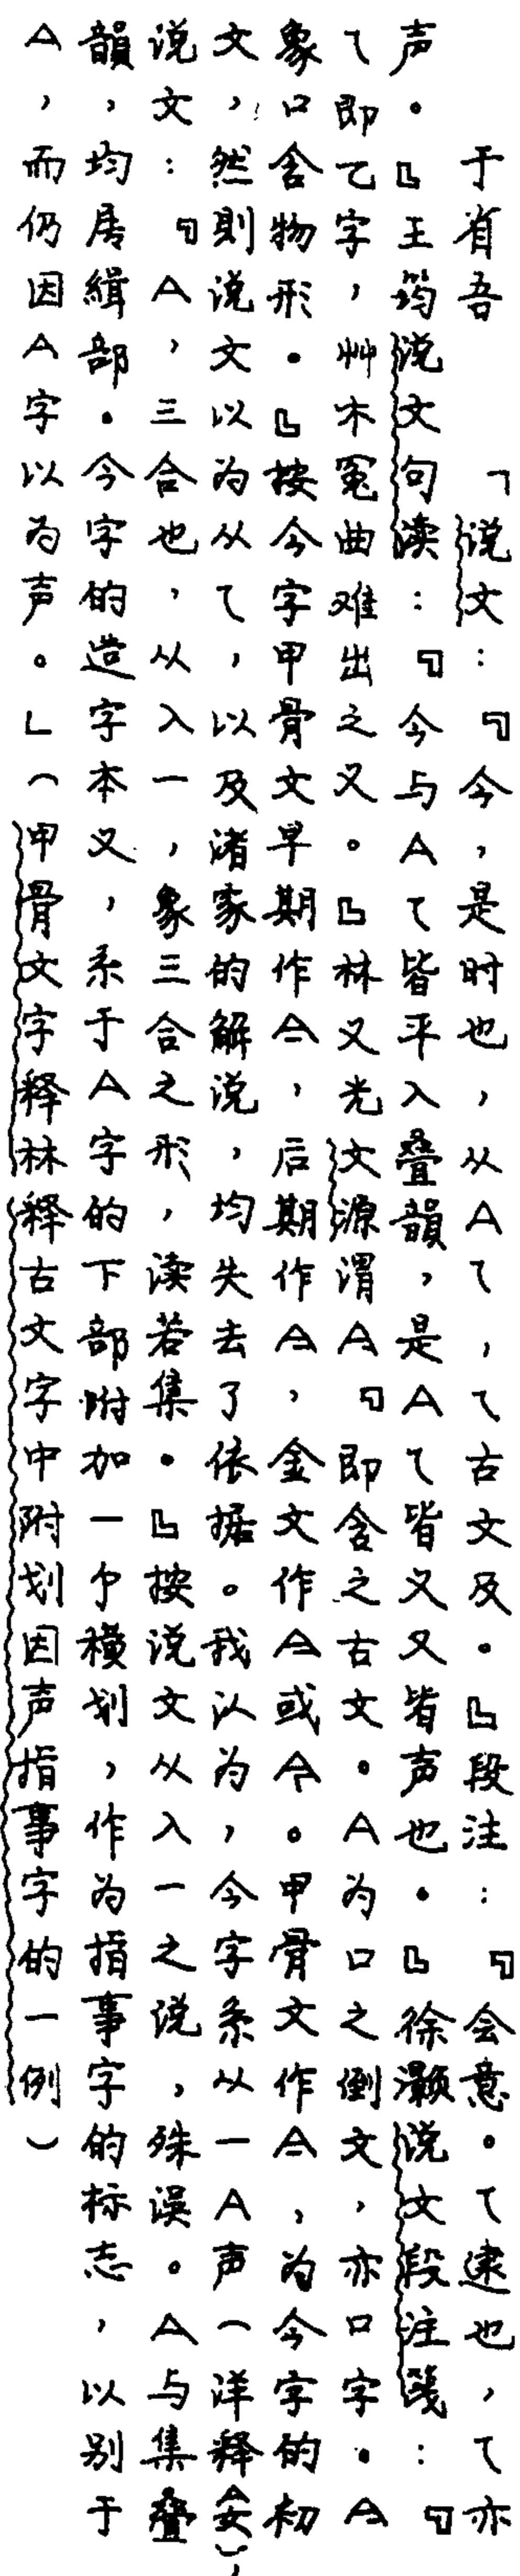 于省吾 「说文：『今，是时也，从亼㇈，㇈古文及。』段注：『会意。㇈逮也，㇈亦
声。』王筠说文句读：『今与亼㇈皆平入叠韻，是亼㇈皆义又皆声也。』徐灏说文段注笺：『
㇈即乙字，艸木冤曲难出之义。』林义光文源谓亼『即含之古文。亼为口之倒文，亦口字。亼
象口含物形。』按今字甲骨文早期作A，后期作A，金文作A或今。甲骨文作A，为今字的初
文，然则说文以为从㇈，以及诸家的解说，均失去了依据。我认为，今字系从一亼声（详释㚣），
说文：『亼，三合也，从入一，象三合之形，读若集。』按说文从入一之说，殊误。亼与集叠
韻，均属緝部。今字的造字本义，系于亼字的下部附加一个横划，作为指事字的标志，以别于
亼，而仍因亼字以为声。」（甲骨文字释林释古文字中附划因声指事字的一例）